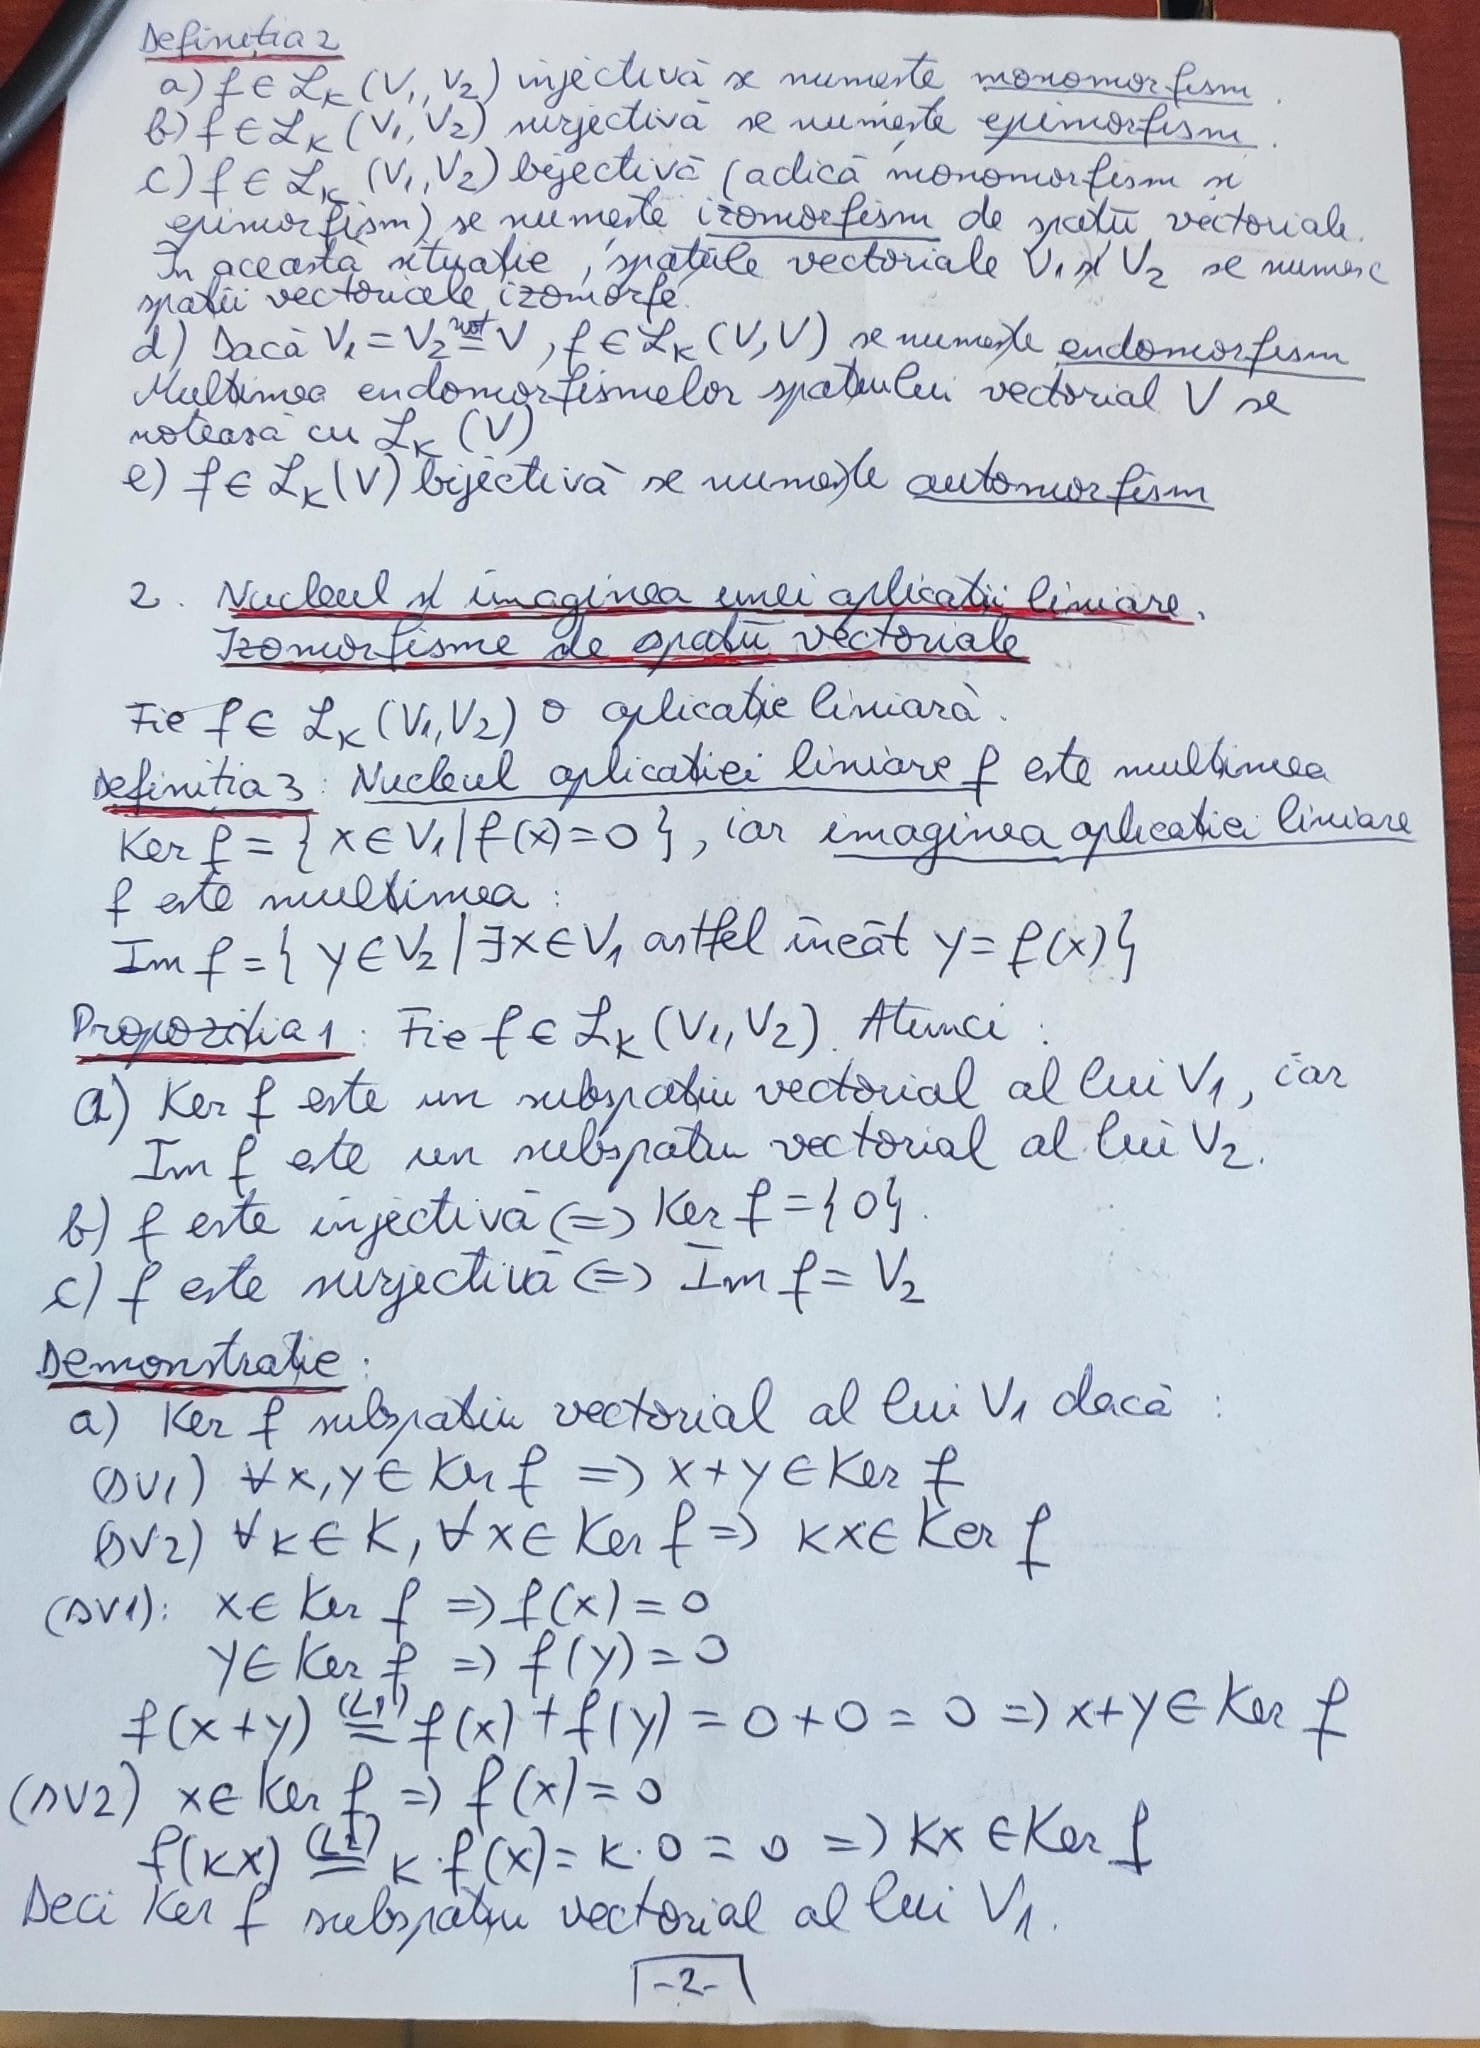 Definiția 2
a) f ∈ ℒ_K (V₁, V₂) injectivă se numește monomorfism.
b) f ∈ ℒ_K (V₁, V₂) surjectivă se numește epimorfism.
c) f ∈ ℒ_K (V₁, V₂) bijectivă (adică monomorfism și
epimorfism) se numește izomorfism de spații vectoriale.
În această situație, spațiile vectoriale V₁ și V₂ se numesc
spații vectoriale izomorfe.
d) Dacă V₁ = V₂ not= V, f ∈ ℒ_K (V, V) se numește endomorfism
Mulțimea endomorfismelor spațiului vectorial V se
notează cu ℒ_K (V)
e) f ∈ ℒ_K (V) bijectivă se numește automorfism
2. Nucleul și imaginea unei aplicații liniare.
Izomorfisme de spații vectoriale
Fie f ∈ ℒ_K (V₁, V₂) o aplicație liniară.
Definiția 3: Nucleul aplicației liniare f este mulțimea
Ker f = { x ∈ V₁ | f(x) = 0 }, iar imaginea aplicației liniare
f este mulțimea:
Im f = { y ∈ V₂ | ∃x ∈ V₁ astfel încât y = f(x) }
Propoziția 1: Fie f ∈ ℒ_K (V₁, V₂). Atunci:
a) Ker f este un subspațiu vectorial al lui V₁, iar
Im f este un subspațiu vectorial al lui V₂.
b) f este injectivă (=) Ker f = {0}.
c) f este surjectivă (=) Im f = V₂
Demonstrație:
a) Ker f subspațiu vectorial al lui V₁ dacă:
(SV1) ∀x, y ∈ Ker f => x + y ∈ Ker f
(SV2) ∀k ∈ K, ∀x ∈ Ker f => kx ∈ Ker f
(SV1): x ∈ Ker f => f(x) = 0
y ∈ Ker f => f(y) = 0
f(x + y) (L1)= f(x) + f(y) = 0 + 0 = 0 => x + y ∈ Ker f
(SV2) x ∈ Ker f => f(x) = 0
f(kx) (L2)= k · f(x) = k · 0 = 0 => kx ∈ Ker f
Deci Ker f subspațiu vectorial al lui V₁.
-2-